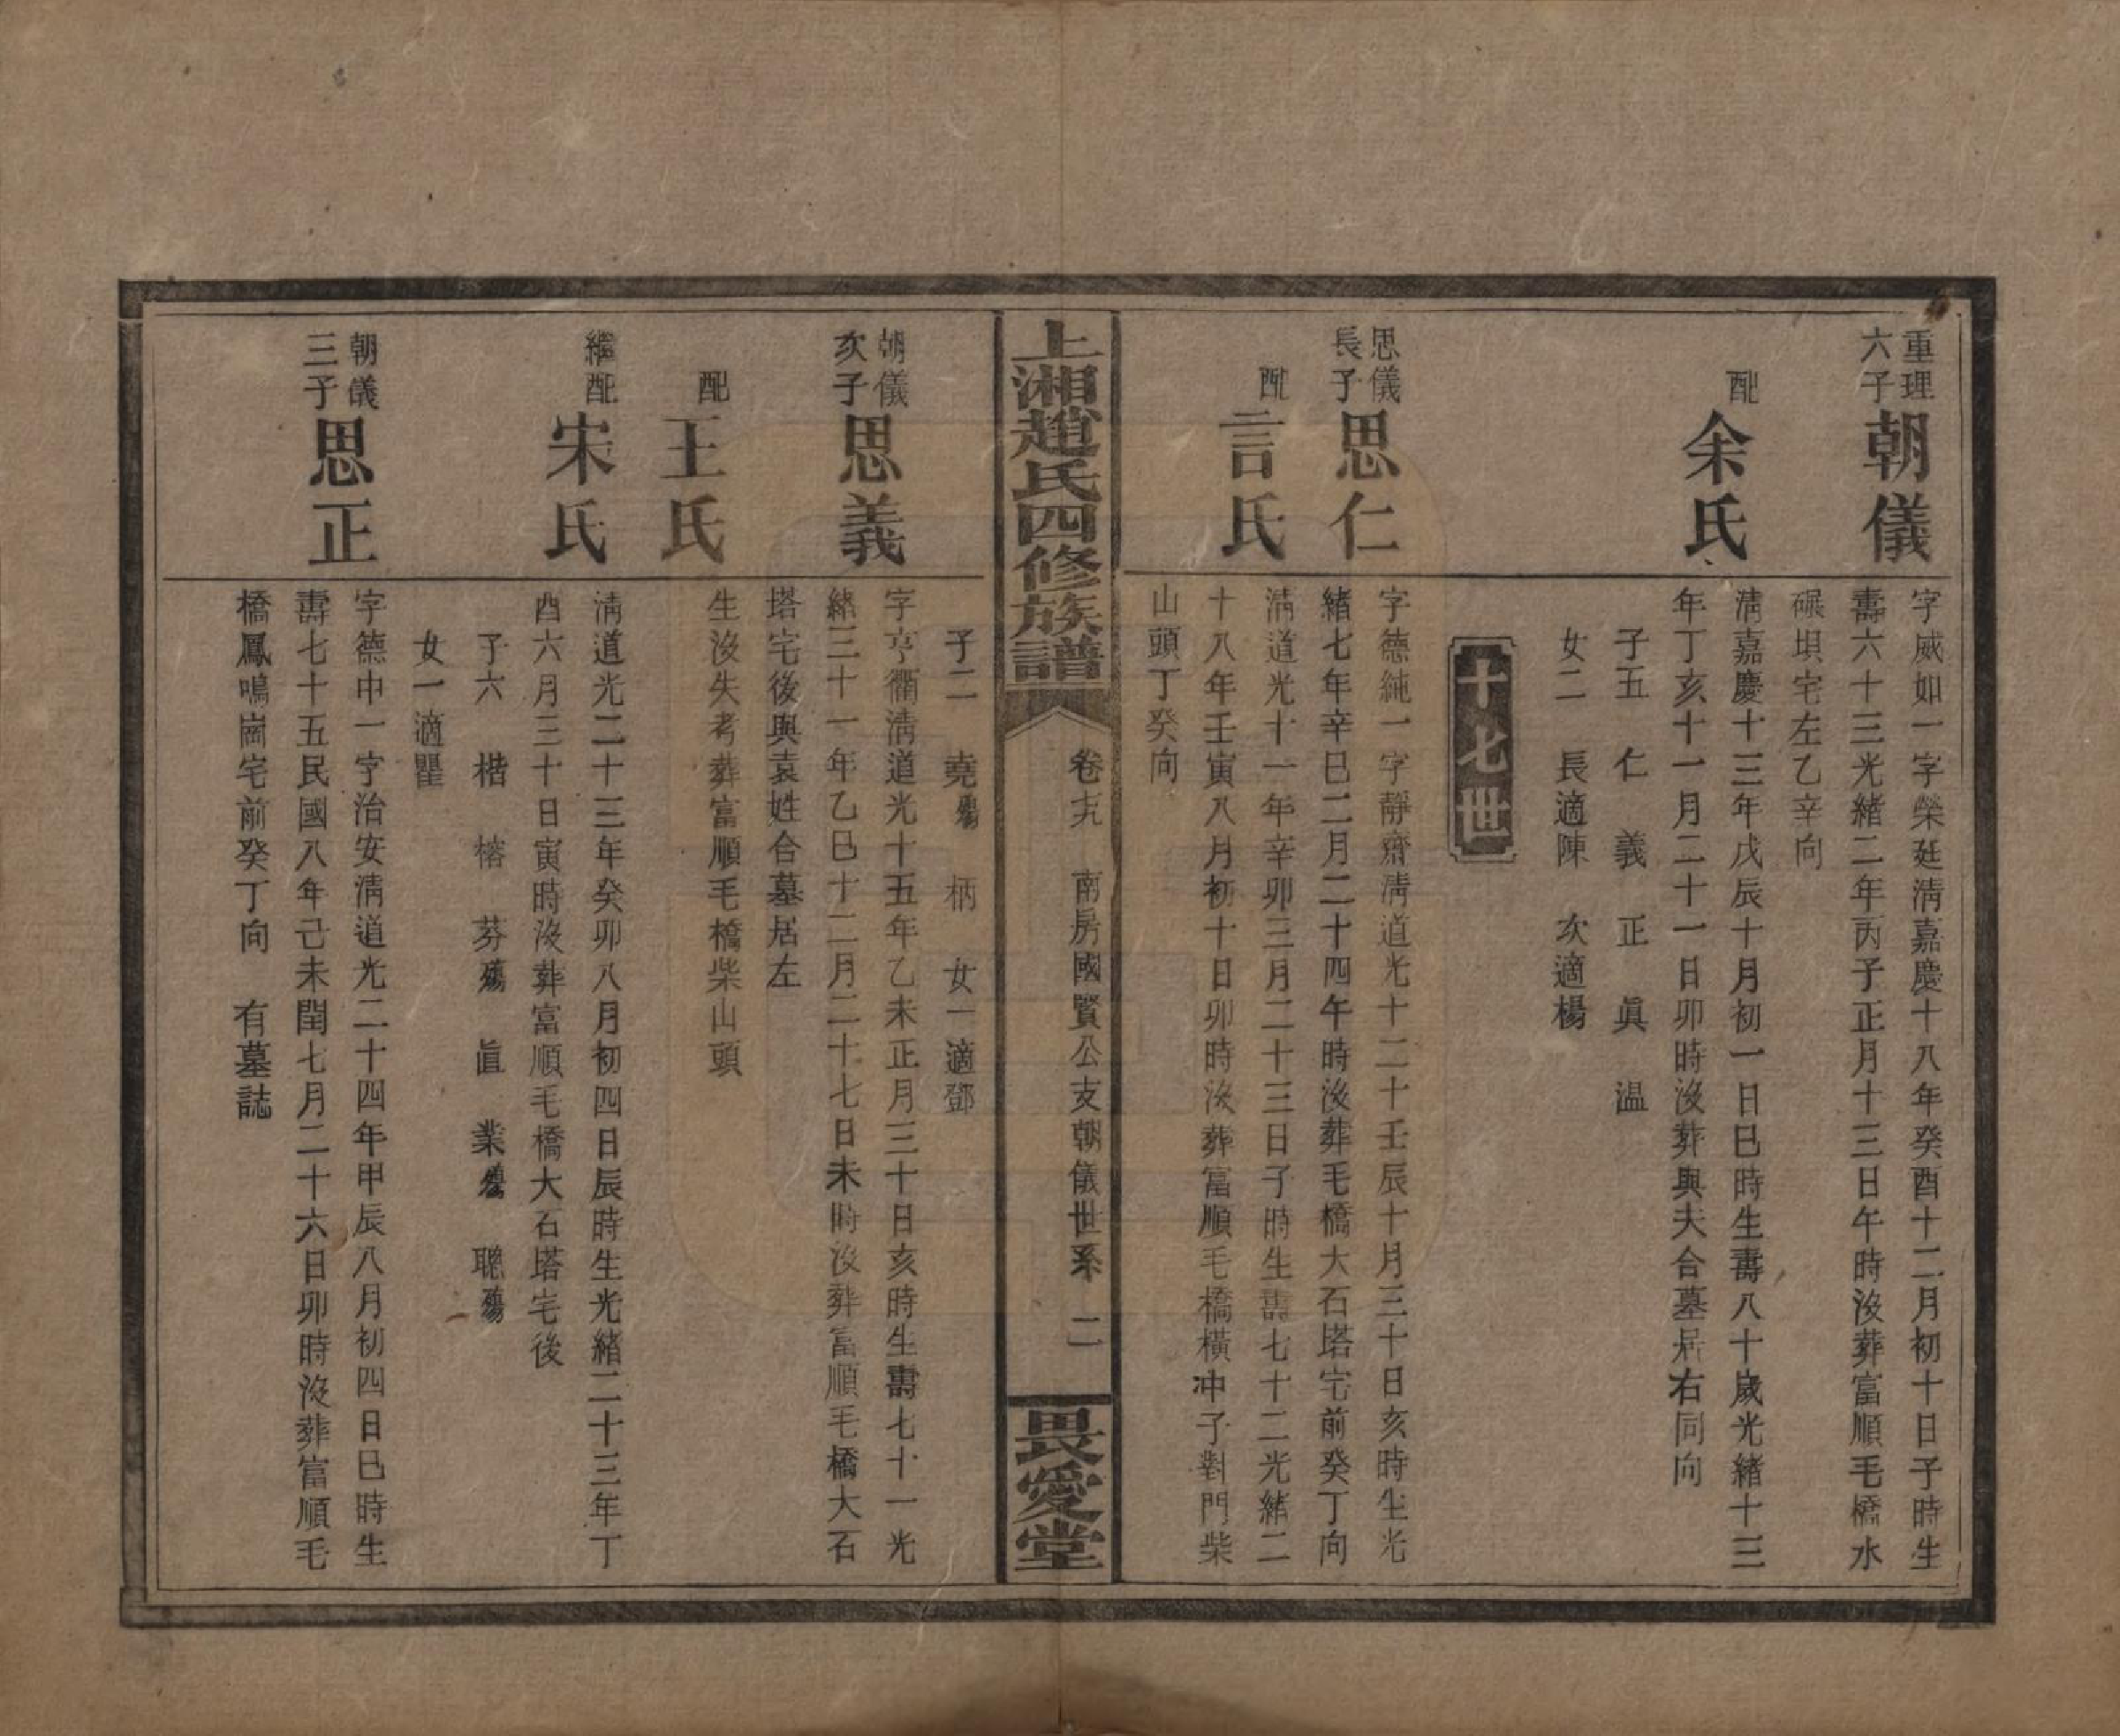 重理
六子
朝儀
字威如一字榮廷清嘉慶十八年癸酉十二月初十日子時生
壽六十三光緒二年丙子正月十三日午時沒葬富順毛橋水
碾垻宅左乙辛向
配
余氏
清嘉慶十三年戊辰十月初一日巳時生壽八十歲光緒十三
年丁亥十一月二十一日卯時沒葬與夫合墓居右同向
子五 仁 義 正 眞 温
女二 長適陳 次適楊
十七世
思儀
長子
思仁
字德純一字靜齋清道光十二十壬辰十月三十日亥時生光
緒七年辛巳二月二十四午時沒葬毛橋大石塔宅前癸丁向
配
言氏
清道光十一年辛卯三月二十三日子時生壽七十二光緒二
十八年壬寅八月初十日卯時沒葬富順毛橋橫冲子對門柴
山頭丁癸向
上湘趙氏四修族譜
卷十九 南房國賢公支朝儀世系 二
畏愛堂
子二 堯殤 柄 女一適鄧
朝儀
次子
思義
字亨衢清道光十五年乙未正月三十日亥時生壽七十一光
緒三十一年乙巳十二月二十七日未時沒葬富順毛橋大石
塔宅後與袁姓合墓居左
配
王氏
生沒失考葬富順毛橋柴山頭
繼配
宋氏
清道光二十三年癸卯八月初四日辰時生光緒二十三年丁
酉六月三十日寅時沒葬富順毛橋大石塔宅後
子六 楷 榕 芬殤 眞 業殤 聰殤
女一適瞿
朝儀
三子
思正
字德中一字治安清道光二十四年甲辰八月初四日巳時生
壽七十五民國八年己未閏七月二十六日卯時沒葬富順毛
橋鳳鳴崗宅前癸丁向 有墓誌